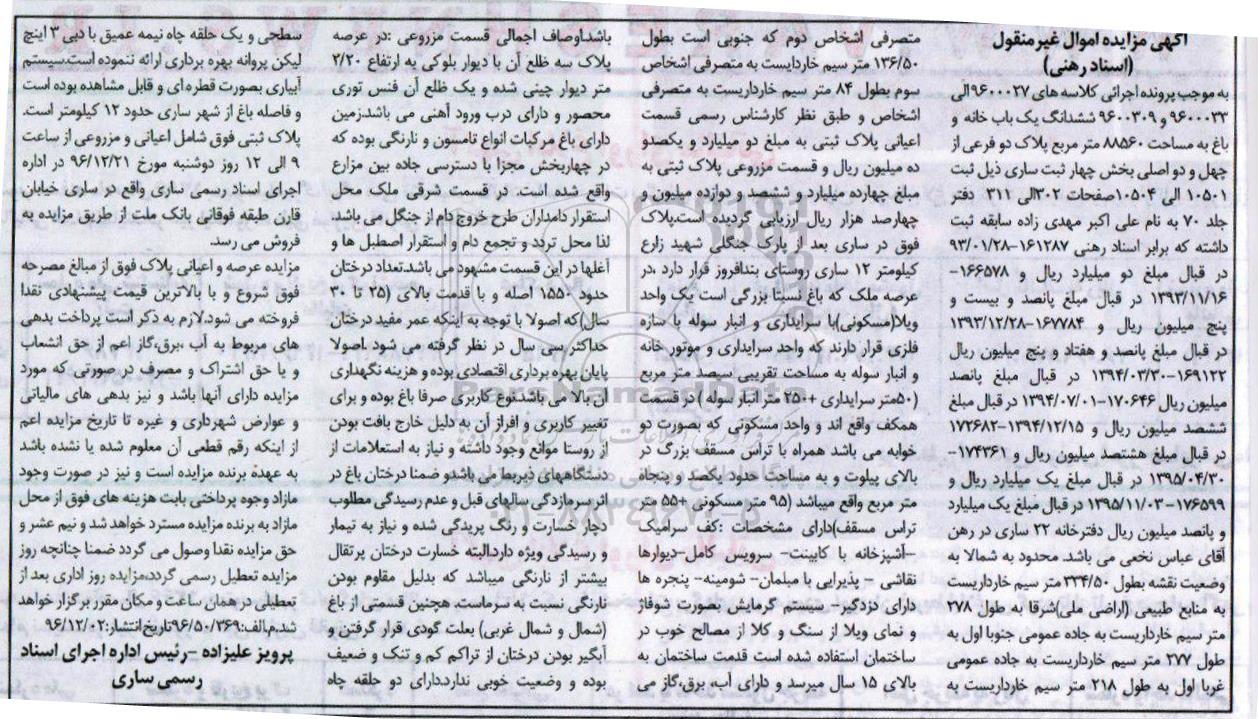 آگهی مزایده اموال غیرمنقول
(اسناد رهنی)
به موجب پرونده اجرائی کلاسه های ۹۶۰۰۰۲۷ الی
۹۶۰۰۰۳۳ و ۹۶۰۰۳۰۹ ششدانگ یک باب خانه و
باغ به مساحت ۸۸۵۶۰ متر مربع پلاک دو فرعی از
چهل و دو اصلی بخش چهار ثبت ساری ذیل ثبت
۱۰۵۰۱ الی ۱۰۵۰۴صفحات ۳۰۲الی ۳۱۱ دفتر
جلد ۷۰ به نام علی اکبر مهدی زاده سابقه ثبت
داشته که برابر اسناد رهنی ۱۶۱۲۸۷-۹۳/۰۱/۲۸
در قبال مبلغ دو میلیارد ریال و ۱۶۶۵۷۸-
۱۳۹۳/۱۱/۱۶ در قبال مبلغ پانصد و بیست و
پنج میلیون ریال و ۱۶۷۷۸۴-۱۳۹۳/۱۲/۲۸
در قبال مبلغ پانصد و هفتاد و پنج میلیون ریال
۱۶۹۱۲۲-۱۳۹۴/۰۳/۳۰ در قبال مبلغ پانصد
میلیون ریال ۱۷۰۶۴۶-۱۳۹۴/۰۷/۰۱ در قبال مبلغ
ششصد میلیون ریال و ۱۳۹۴/۱۲/۱۵-۱۷۲۶۸۲
در قبال مبلغ هشتصد میلیون ریال و ۱۷۴۳۶۱-
۱۳۹۵/۰۴/۳۰ در قبال مبلغ یک میلیارد ریال و
۱۷۶۵۹۹-۱۳۹۵/۱۱/۰۳ در قبال مبلغ یک میلیارد
و پانصد میلیون ریال دفترخانه ۲۲ ساری در رهن
آقای عباس نخعی می باشد. محدود به شمالا به
وضعیت نقشه بطول ۳۳۴/۵۰ متر سیم خارداریست
به منابع طبیعی (اراضی ملی)شرقا به طول ۲۷۸
متر سیم خارداریست به جاده عمومی جنوبا اول به
طول ۲۷۷ متر سیم خارداریست به جاده عمومی
غربا اول به طول ۲۱۸ متر سیم خارداریست به
متصرفی اشخاص دوم که جنوبی است بطول
۱۳۶/۵۰ متر سیم خاردایست به متصرفی اشخاص
سوم بطول ۸۴ متر سیم خارداریست به متصرفی
اشخاص و طبق نظر کارشناس رسمی قسمت
اعیانی پلاک ثبتی به مبلغ دو میلیارد و یکصدو
ده میلیون ریال و قسمت مزروعی پلاک ثبتی به
مبلغ چهارده میلیارد و ششصد و دوازده میلیون و
چهارصد هزار ریال ارزیابی گردیده است.پلاک
فوق در ساری بعد از پارک جنگلی شهید زارع
کیلومتر ۱۲ ساری روستای بندافروز قرار دارد .در
عرصه ملک که باغ نسبتا بزرگی است یک واحد
ویلا(مسکونی)با سرایداری و انبار سوله با سازه
فلزی قرار دارند که واحد سرایداری و موتور خانه
و انبار سوله به مساحت تقریبی سیصد متر مربع
(۵۰متر سرایداری +۲۵۰ متر انبار سوله ) در قسمت
همکف واقع اند و واحد مسکونی که بصورت دو
خوابه می باشد همراه با تراس مسقف بزرگ در
بالای پیلوت و به مساحت حدود یکصد و پنجاه
متر مربع واقع میباشد (۹۵ متر مسکونی +۵۵ متر
تراس مسقف)دارای مشخصات :کف سرامیک
-آشپزخانه با کابینت- سرویس کامل-دیوارها
نقاشی - پذیرایی با مبلمان- شومینه- پنجره ها
دارای دزدگیر- سیستم گرمایش بصورت شوفاژ
- نمای ویلا از سنگ و کلا از مصالح خوب در
ساختمان استفاده شده است قدمت ساختمان به
بالای ۱۵ سال میرسد و دارای آب، برق،گاز می
باشد.اوصاف اجمالی قسمت مزروعی :در عرصه
پلاک سه ظلع آن با دیوار بلوکی به ارتفاع ۲/۲۰
متر دیوار چینی شده و یک ظلع آن فنس توری
محصور و دارای درب ورود آهنی می باشد.زمین
دارای باغ مرکبات انواع تامسون و نارنگی بوده که
در چهاربخش مجزا با دسترسی جاده بین مزارع
واقع شده است. در قسمت شرقی ملک محل
استقرار دامداران طرح خروج دام از جنگل می باشد.
لذا محل تردد و تجمع دام و استقرار اصطبل ها و
آغلها در این قسمت مشهود می باشد.تعداد درختان
حدود ۱۵۵۰ اصله و با قدمت بالای (۲۵ تا ۳۰
سال)که اصولا با توجه به اینکه عمر مفید درختان
حداکثر سی سال در نظر گرفته می شود .اصولا
پایان بهره برداری اقتصادی بوده و هزینه نگهداری
آن بالا می باشد.نوع کاربری صرفا باغ بوده و برای
تغییر کاربری و افراز آن به دلیل خارج بافت بودن
از روستا موانع وجود داشته و نیاز به استعلامات از
دستگاههای ذیربط می باشد و ضمنا درختان باغ در
اثر سرمازدگی سالهای قبل و عدم رسیدگی مطلوب
دچار خسارت و رنگ پریدگی شده و نیاز به تیمار
و رسیدگی ویژه دارد.البته خسارت درختان پرتقال
بیشتر از نارنگی میباشد که بدلیل مقاوم بودن
نارنگی نسبت به سرماست. هچنین قسمتی از باغ
(شمال و شمال غربی) بعلت گودی قرار گرفتن و
آبگیر بودن درختان از تراکم کم و تنک و ضعیف
بوده و وضعیت خوبی ندارد.دارای دو حلقه چاه
سطحی و یک حلقه چاه نیمه عمیق با دبی ۳ اینچ
لیکن پروانه بهره برداری ارائه ننموده است.سیستم
آبیاری بصورت قطره ای و قابل مشاهده بوده است
و فاصله باغ از شهر ساری حدود ۱۲ کیلومتر است.
پلاک ثبتی فوق شامل اعیانی و مزروعی از ساعت
۹ الی ۱۲ روز دوشنبه مورخ ۹۶/۱۲/۲۱ در اداره
اجرای اسناد رسمی ساری واقع در ساری خیابان
قارن طبقه فوقانی بانک ملت از طریق مزایده به
فروش می رسد.
مزایده عرصه و اعیانی پلاک فوق از مبالغ مصرحه
فوق شروع و با بالاترین قیمت پیشنهادی نقدا
فروخته می شود.لازم به ذکر است پرداخت بدهی
های مربوط به آب ،برق،گاز اعم از حق انشعاب
و یا حق اشتراک و مصرف در صورتی که مورد
مزایده دارای آنها باشد و نیز بدهی های مالیاتی
و عوارض شهرداری و غیره تا تاریخ مزایده اعم
از اینکه رقم قطعی آن معلوم شده یا نشده باشد
به عهدة برنده مزایده است و نیز در صورت وجود
مازاد وجوه پرداختی بابت هزینه های فوق از محل
مازاد به برنده مزایده مسترد خواهد شد و نیم عشر و
حق مزایده نقدا وصول می گردد ضمنا چنانچه روز
مزایده تعطیل رسمی گردد،مزایده روز اداری بعد از
تعطیلی در همان ساعت و مکان مقرر برگزار خواهد
شد.م/الف:۹۶/۵۰/۳۶۹تاریخ انتشار:۹۶/۱۲/۰۲
پرویز علیزاده -رئیس اداره اجرای اسناد
رسمی ساری
ParsNamadData
۰۲۱-۸۸۳۴۹۶۷۰-۵